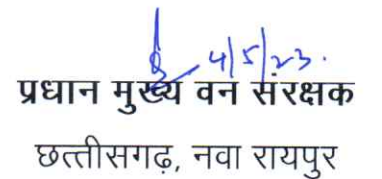 4/5/23.
प्रधान मुख्य वन संरक्षक
छत्तीसगढ़, नवा रायपुर